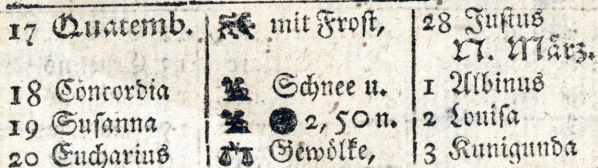 17 Quatemb. mit Frost, 28 Justus
N. März.
18 Concordia Schnee u. 1 Albinus
19 Susanna 2, 50 n. 2 Louisa
20 Eucharius Gewölke, 3 Kunigunda